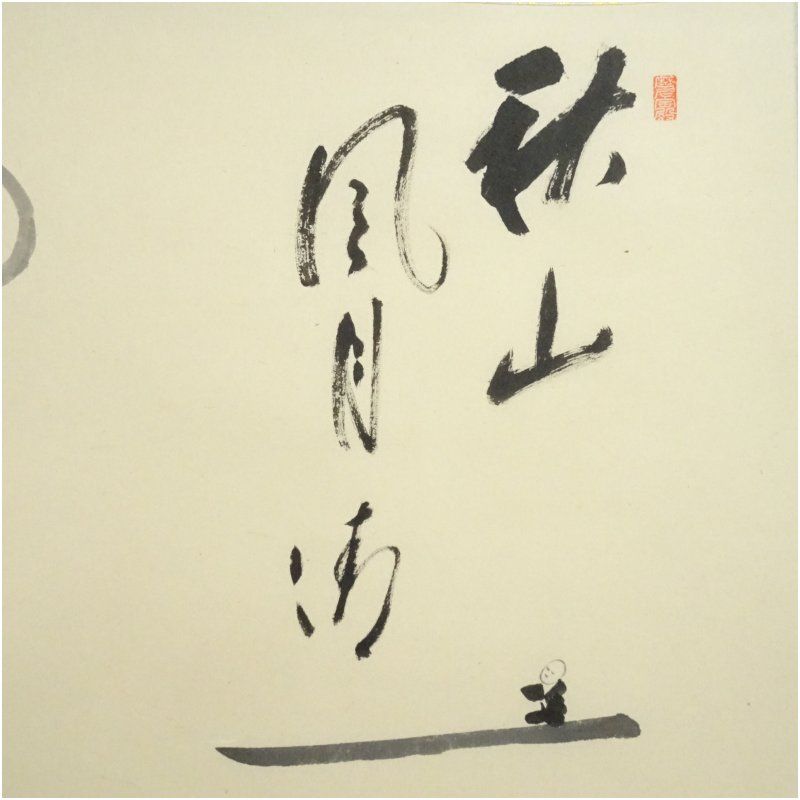 秋山
風月清